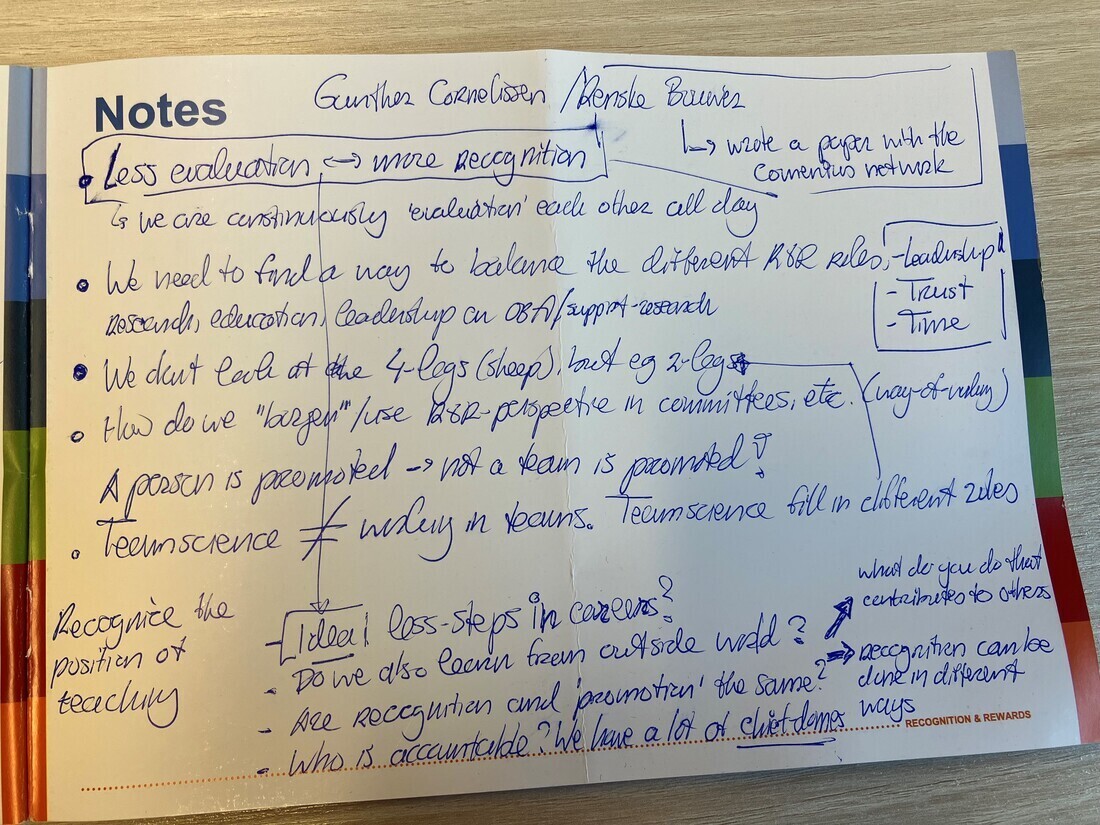 Notes
Gunther Cornelissen / Renske Bouwer
↳ wrote a paper with the
Comenius network
• Less evaluation ↔ more recognition
↳ we are continuously 'evaluation' each other all day
• We need to find a way to balance the different R&R roles,
research, education, leadership an /support-research
- Leadership
- Trust
- Time
• We don't look at the 4-legs (sheep), but eg 2-legs
• How do we "borgen"/use R&R-perspective in committees, etc. (way-of-working)
A person is promoted → not a team is promoted?
• Teamscience ≠ working in teams. Teamscience fill in different roles
Recognize the
position of
teaching
- Idea! less-steps in careers?
- Do we also learn from outside world?
- Are recognition and 'promotion' the same?
- Who is accountable? We have a lot of
what do you do that
contributes to others
⇒ recognition can be
done in different
ways
RECOGNITION & REWARDS